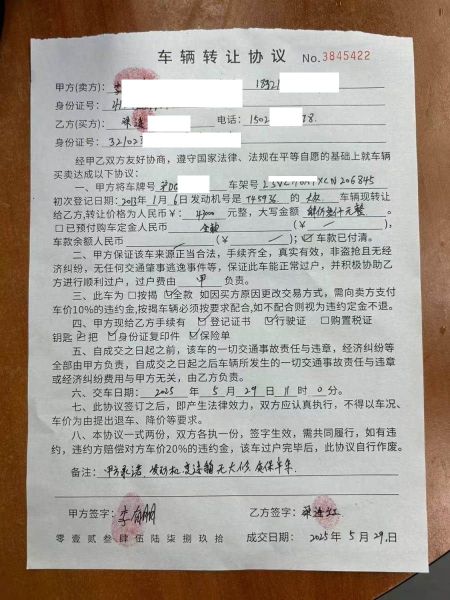 车辆转让协议 No.3845422
甲方(卖方):
身份证号:
乙方(买方): 电话:
身份证号:
经甲乙双方友好协商，遵守国家法律、法规在平等自愿的基础上就车辆
买卖达成以下协议:
一、甲方将车牌号 车架号
初次登记日期:2013年1月6日发动机号 的 车辆现转让
给乙方,转让价格为人民币¥: 43000 元整，大写金额 肆仟叁仟元整。
□已预付购车定金人民币 全款 (¥ ),
车款余额人民币 (¥ );☑车款已付清。
二、甲方保证该车来源正当合法，手续齐全，真实有效，非盗抢且无经
济纠纷，无任何交通肇事逃逸事件等，保证此车能正常过户，并积极协助乙
方进行顺利过户，过户费由 甲 负责。
三、此车为□按揭☑全款 如因买方原因更改交易方式，需向卖方支付
车价10%的违约金,按揭车辆必须按要求配合,如不配合则视为违约定金不退。
四、甲方现给乙方手续有☑登记证书☑行驶证 □购置税证
钥匙 把☑身份证复印件☑保险单
五、自成交之日起之前，该车的一切交通事故责任与违章，经济纠纷等
全部由甲方负责，自成交之日起之后车辆所发生的一切交通事故责任与违章
或经济纠纷费用与甲方无关，由乙方负责。
六、交车日期: 2025年5月29日11时0分。
七、此协议签订之后，即产生法律效力，双方应认真执行，不得以车况、
车价为由提出退车、降价等要求。
八、本协议一式两份，双方各执一份，签字生效，需共同履行，如有违
约，违约方赔偿对方车价20%的违约金，该车过户完毕后，此协议自行作废。
备注: 甲方承诺 发动机 变速箱无大修
甲方签字: 乙方签字:
零壹贰叁肆伍陆柒捌玖拾 成交日期: 2025年5月29日